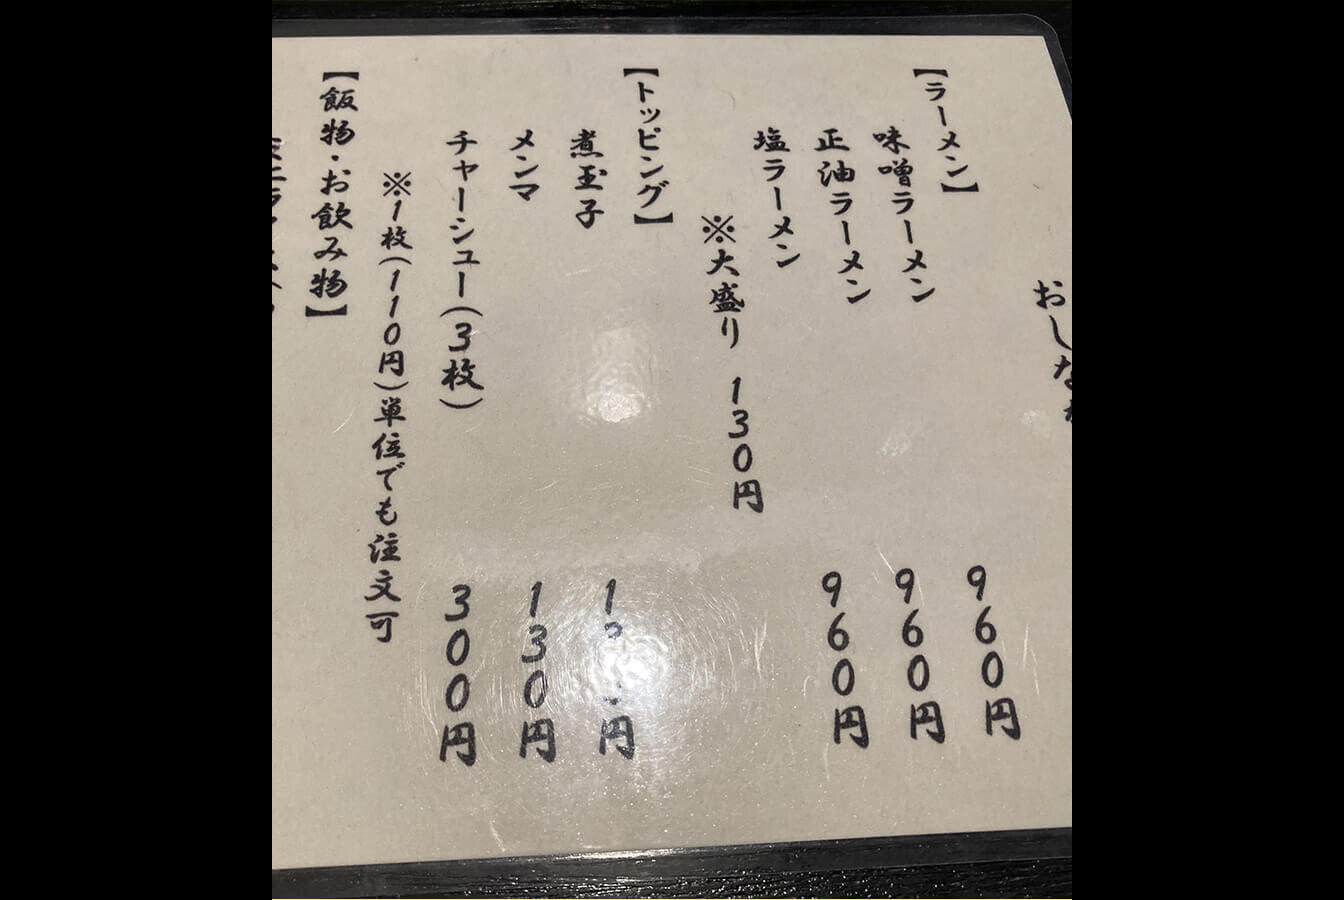 おしな
【ラーメン】
味噌ラーメン 960円
正油ラーメン 960円
塩ラーメン 960円
※大盛り 130円
【トッピング】
煮玉子
メンマ 130円
チャーシュー(3枚) 300円
※1枚(110円)単位でも注文可
【飯物・お飲み物】